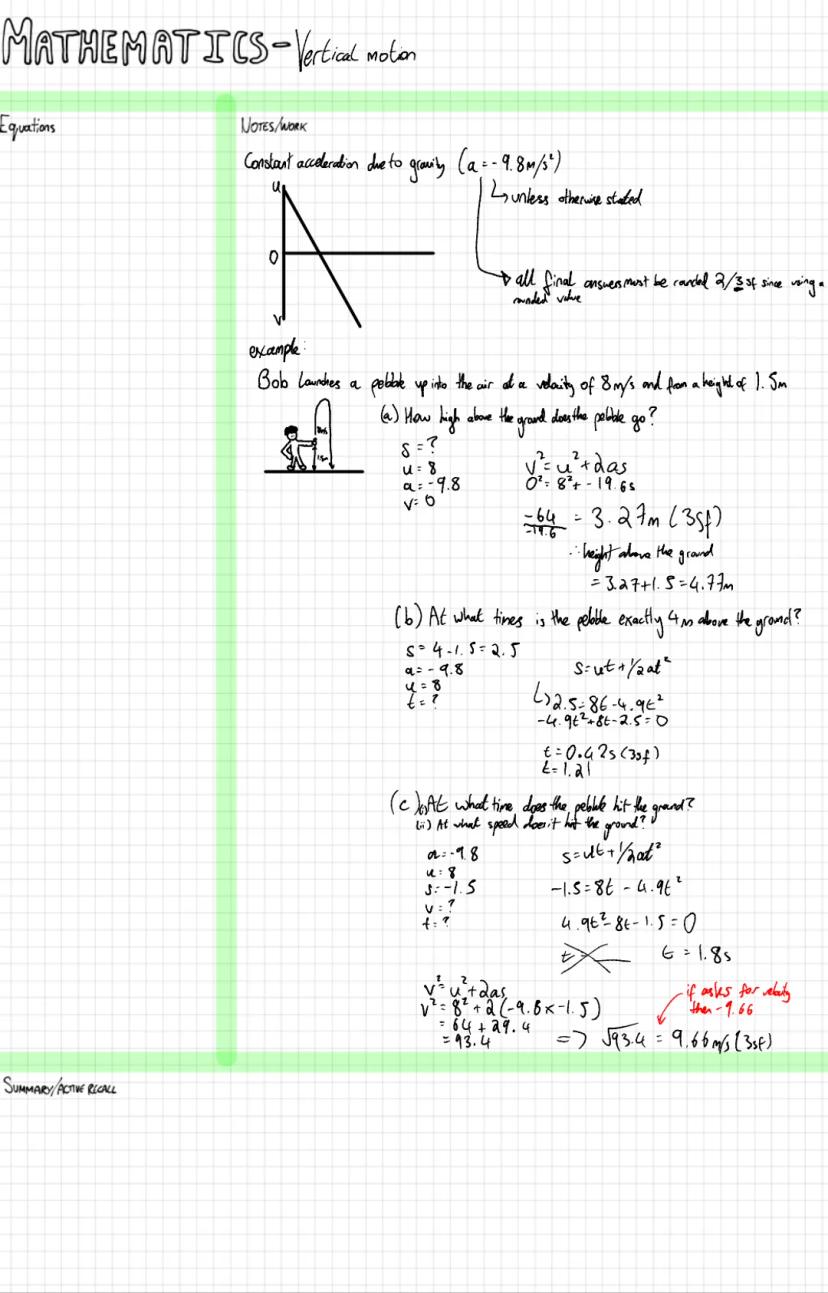 MATHEMATICS - Vertical motion
Equations
NOTES/WORK
Constant acceleration due to gravity (a = -9.8m/s²)
↳ unless otherwise stated
all final answers must be rounded 2/3 sf since using a rounded value
u
0
v
example:
Bob launches a pebble up into the air at a velocity of 8m/s and from a height of 1.5m
(a) How high above the ground does the pebble go?
s = ?
u = 8
a = -9.8
v = 0
v² = u² + 2as
0² = 8² + -19.6s
-64/-19.6 = 3.27m (3sf)
∴ height above the ground
= 3.27 + 1.5 = 4.77m
(b) At what times is the pebble exactly 4m above the ground?
s = 4 - 1.5 = 2.5
a = -9.8
u = 8
t = ?
s = ut + 1/2at²
↳ 2.5 = 8t - 4.9t²
-4.9t² + 8t - 2.5 = 0
t = 0.42s (3sf)
t = 1.21
(c) (i) At what time does the pebble hit the ground?
(ii) At what speed does it hit the ground?
a = -9.8
u = 8
s = -1.5
v = ?
t = ?
s = ut + 1/2at²
-1.5 = 8t - 4.9t²
4.9t² - 8t - 1.5 = 0
t = 1.8s
v² = u² + 2as
v² = 8² + 2(-9.8 x -1.5)
= 64 + 29.4
= 93.4
=> √93.4 = 9.66m/s (3sf)
if asks for velocity
then -9.66
SUMMARY/ACTIVE RECALL